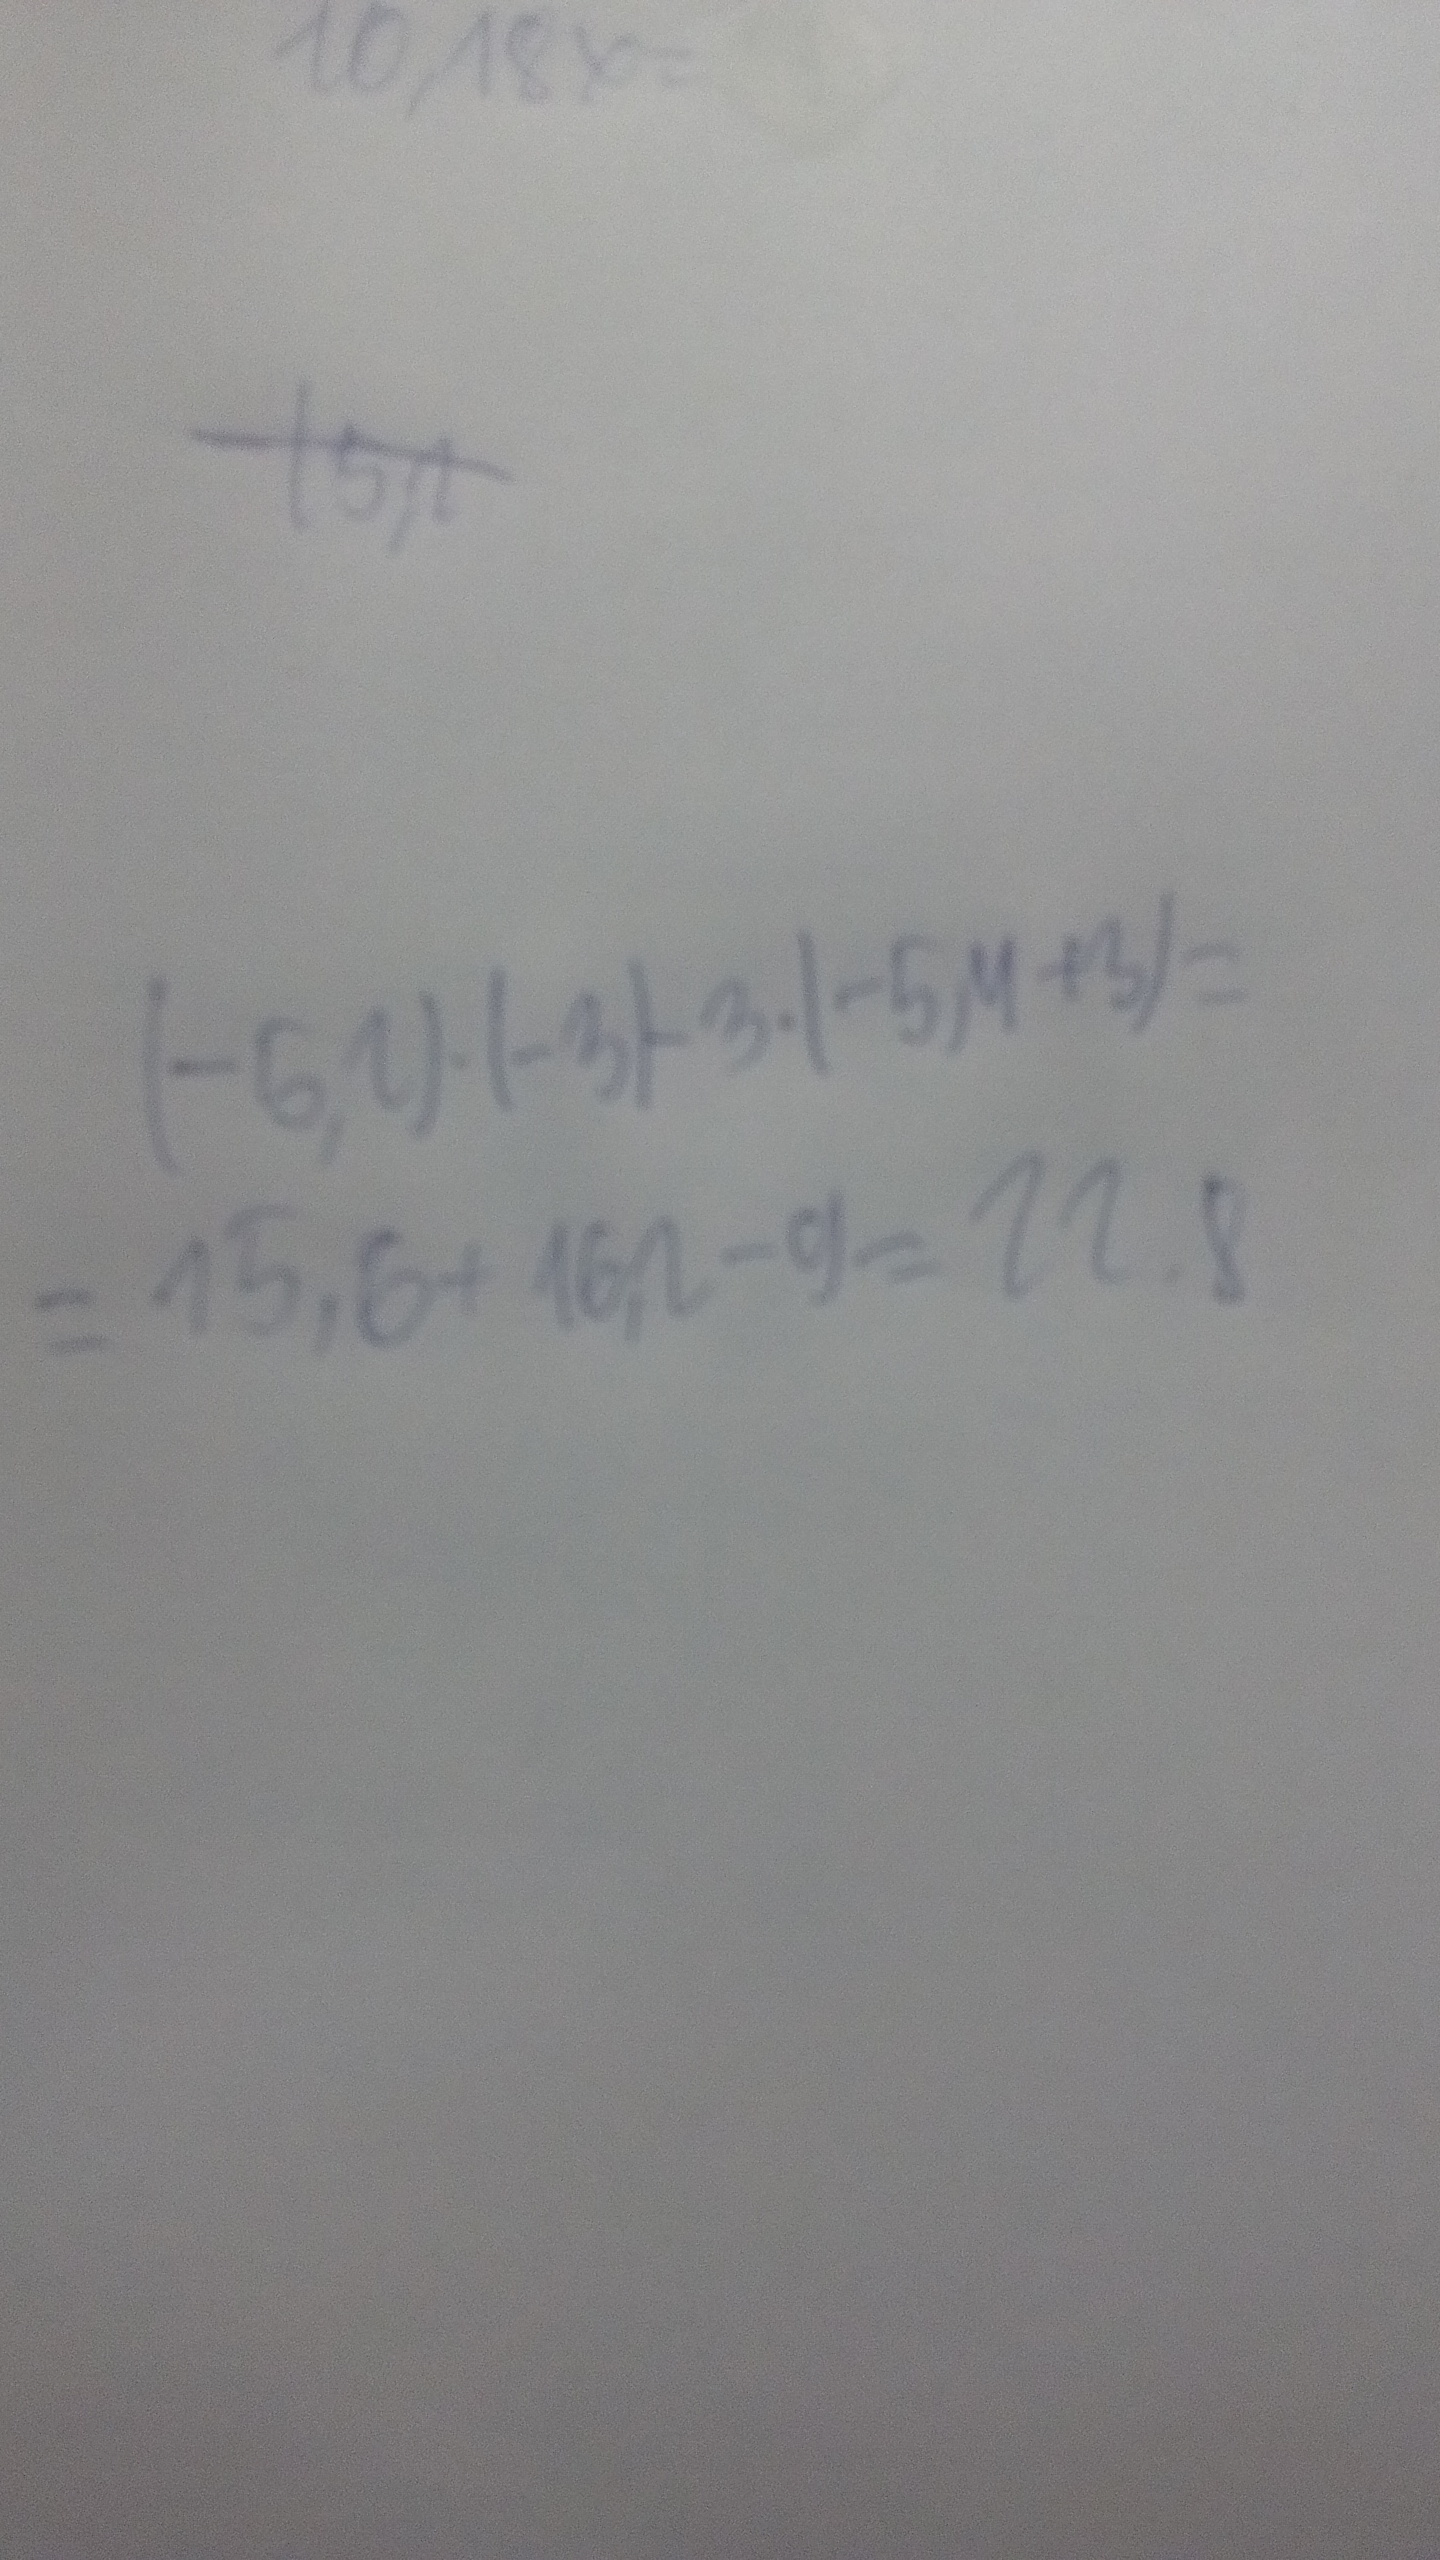 10,18x=
15,2
(-5,2)·(-3)-3·(-5,4+3)=
=15,6+16,2-9=22.8